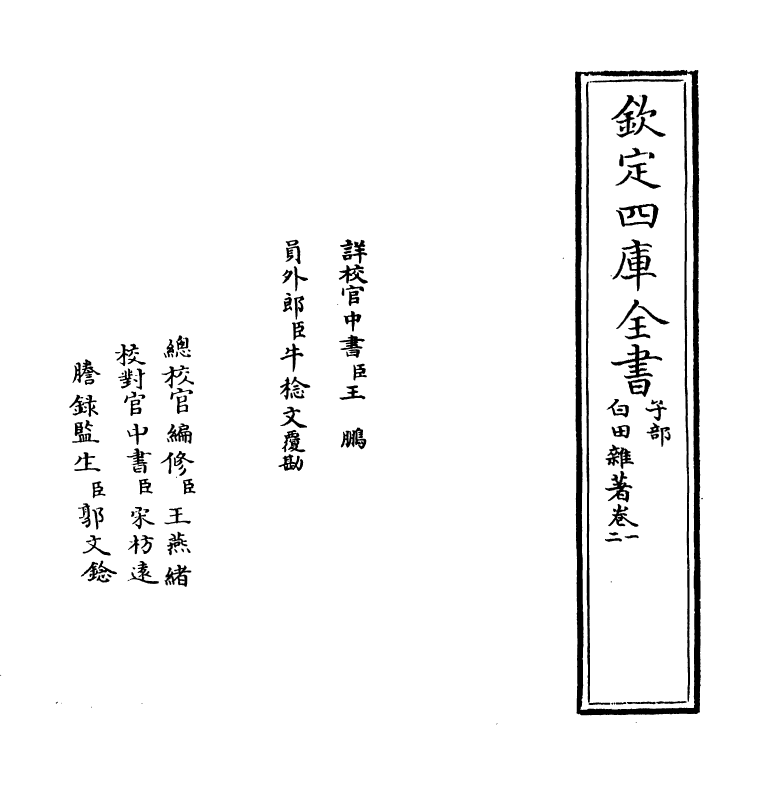 欽定四庫全書
子部
白田雜著卷一
二
詳校官中書臣王鵬
員外郎臣牛稔文覆勘
總校官編修臣王燕緒
校對官中書臣宋枋遠
謄録監生臣郭文鋡